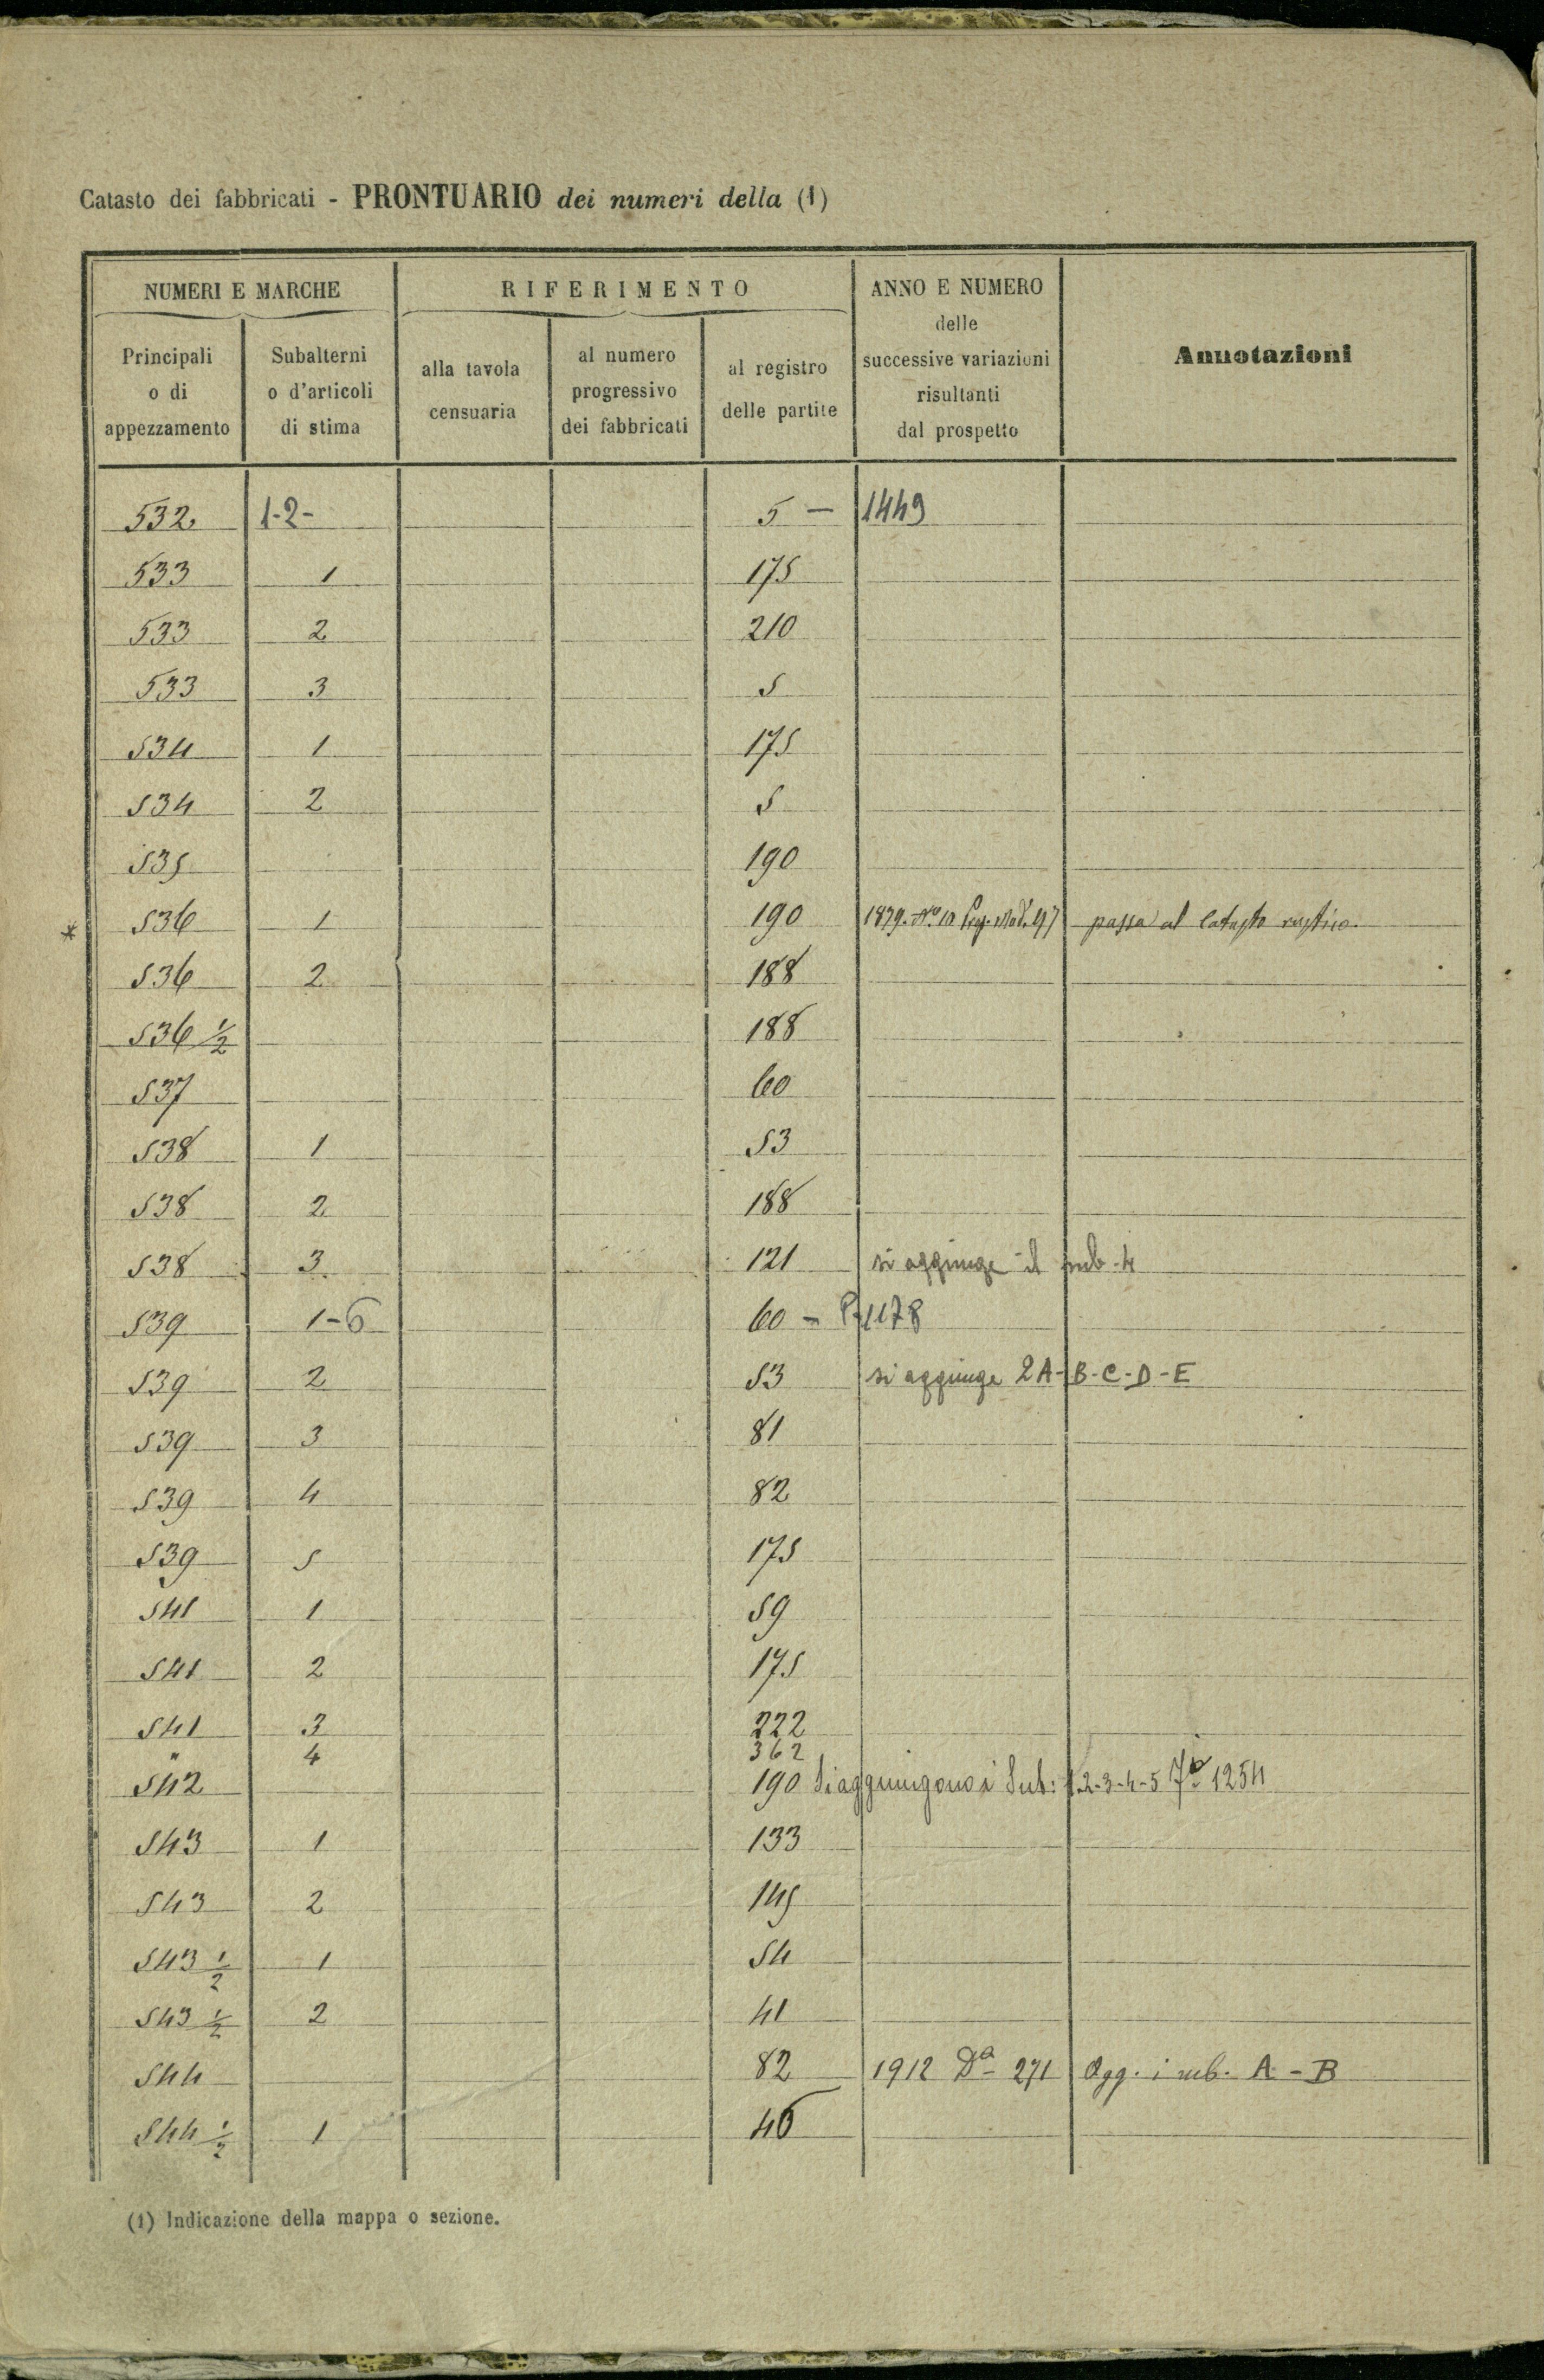 Catasto dei fabbricati - PRONTUARIO dei numeri della (1)
NUMERI E MARCHE
RIFERIMENTO
ANNO E NUMERO
delle
successive variazioni
risultanti
dal prospetto
Annotazioni
Principali
o di
appezzamento
Subalterni
o d'articoli
di stima
alla tavola
censuaria
al numero
progressivo
dei fabbricati
al registro
delle partite
532 1-2- 5 - 1449
533 1 175
533 2 210
533 3 5
534 1 175
534 2 5
535 190
* 536 1 190 1879. No. 10 Mod. 97 passa al Catasto rustico
536 2 188
536 1/2 188
537 60
538 1 53
538 2 188
538 3 121 si aggiunge il sub. 4
539 1-6 60 - P. 1178
539 2 53 si aggiunge 2A-B-C-D-E
539 3 81
539 4 82
539 5 175
541 1 59
541 2 175
541 3 222
" 4 362
542 190 Si aggiungono i Sub: 1.2-3-4-5 1254
543 1 133
543 2 145
543 1/2 1 54
543 1/2 2 41
544 82 1912 Da 271 Agg. i sub. A - B
544 1/2 1 46
(1) Indicazione della mappa o sezione.